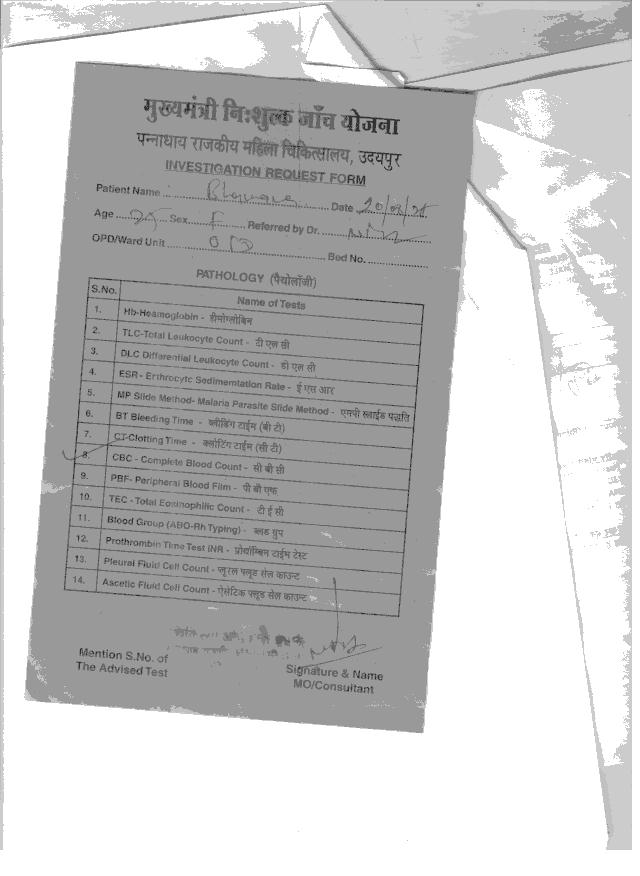 मुख्यमंत्री नि:शुल्क जाँच योजना
पन्नाधाय राजकीय महिला चिकित्सालय, उदयपुर
INVESTIGATION REQUEST FORM
Patient Name Date
Age Sex F Referred by Dr.
OPD/Ward Unit Bed No.
PATHOLOGY (पैथोलॉजी)
S.No. Name of Tests
1. Hb-Heamoglobin - हीमोग्लोबिन
2. TLC-Total Leukocyte Count - टी एल सी
3. DLC Differential Leukocyte Count - डी एल सी
4. ESR - Erthrocytc Sedimemtation Rate - ई एस आर
5. MP Slide Method- Malaria Parasite Slide Method - एमपी स्लाईड पद्धति
6. BT Bleeding Time - ब्लीडिंग टाईम (बी टी)
7. CT-Clotting Time - क्लोटिंग टाईम (सी टी)
8. CBC - Complete Blood Count - सी बी सी
9. PBF- Peripheral Blood Film - पी बी एफ
10. TEC - Total Eosinophilic Count - टी ई सी
11. Blood Group (ABO-Rh Typing) - ब्लड ग्रुप
12. Prothrombin Time Test INR - प्रोथ्रोम्बिन टाईम टेस्ट
13. Pleural Fluid Cell Count - प्लूरल फ्लूड सेल काउन्ट
14. Ascetic Fluid Cell Count - ऐसेटिक फ्लूड सेल काउन्ट
Mention S.No. of
The Advised Test
Signature & Name
MO/Consultant